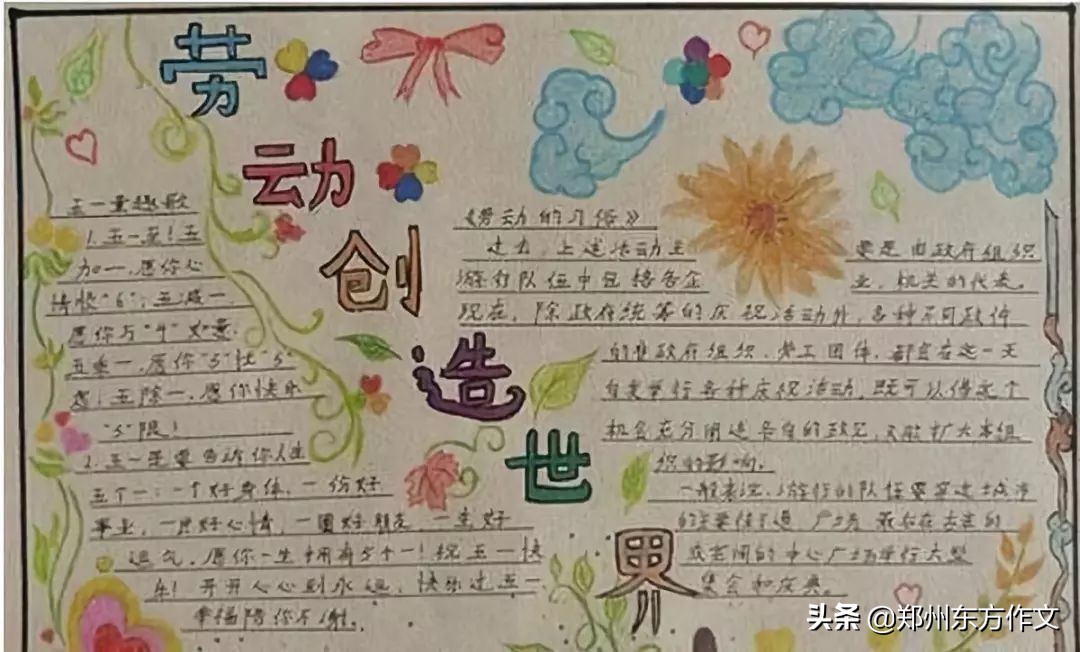 劳动创造世界
五一童趣歌
1.五一至！五
加一，愿你心
情快"6"；五减一，
愿你与"4"火暴，
五乘一，愿你"5"忧"5"
虑；五除一，愿你快乐
"5"限！
2.五一是要告诉你人生
五个一：一个好身体，一份好
事业，一片好心情，一圈好朋友，一生好
运气。愿你一生拥有5个一！祝五一快
乐！开开心心到永远，快乐过五一
幸福陪你不谢。
《劳动的习俗》
过去，上述活动主要是由政府组织
游行队伍中包括各企业，机关的代表。
现在，除政府统筹的庆祝活动外，各种不同政件
的非政府组织，劳工团体，都宜在这一天
自发举行各种庆祝活动，既可以借这个
机会充分阐述各自的政见，又能扩大本组
织的影响。
一般来说，游行的队伍要穿过城市
的主要街道、广场，最后在
空间的中心广场举行大型
集会和庆典。
头条 @郑州东方作文